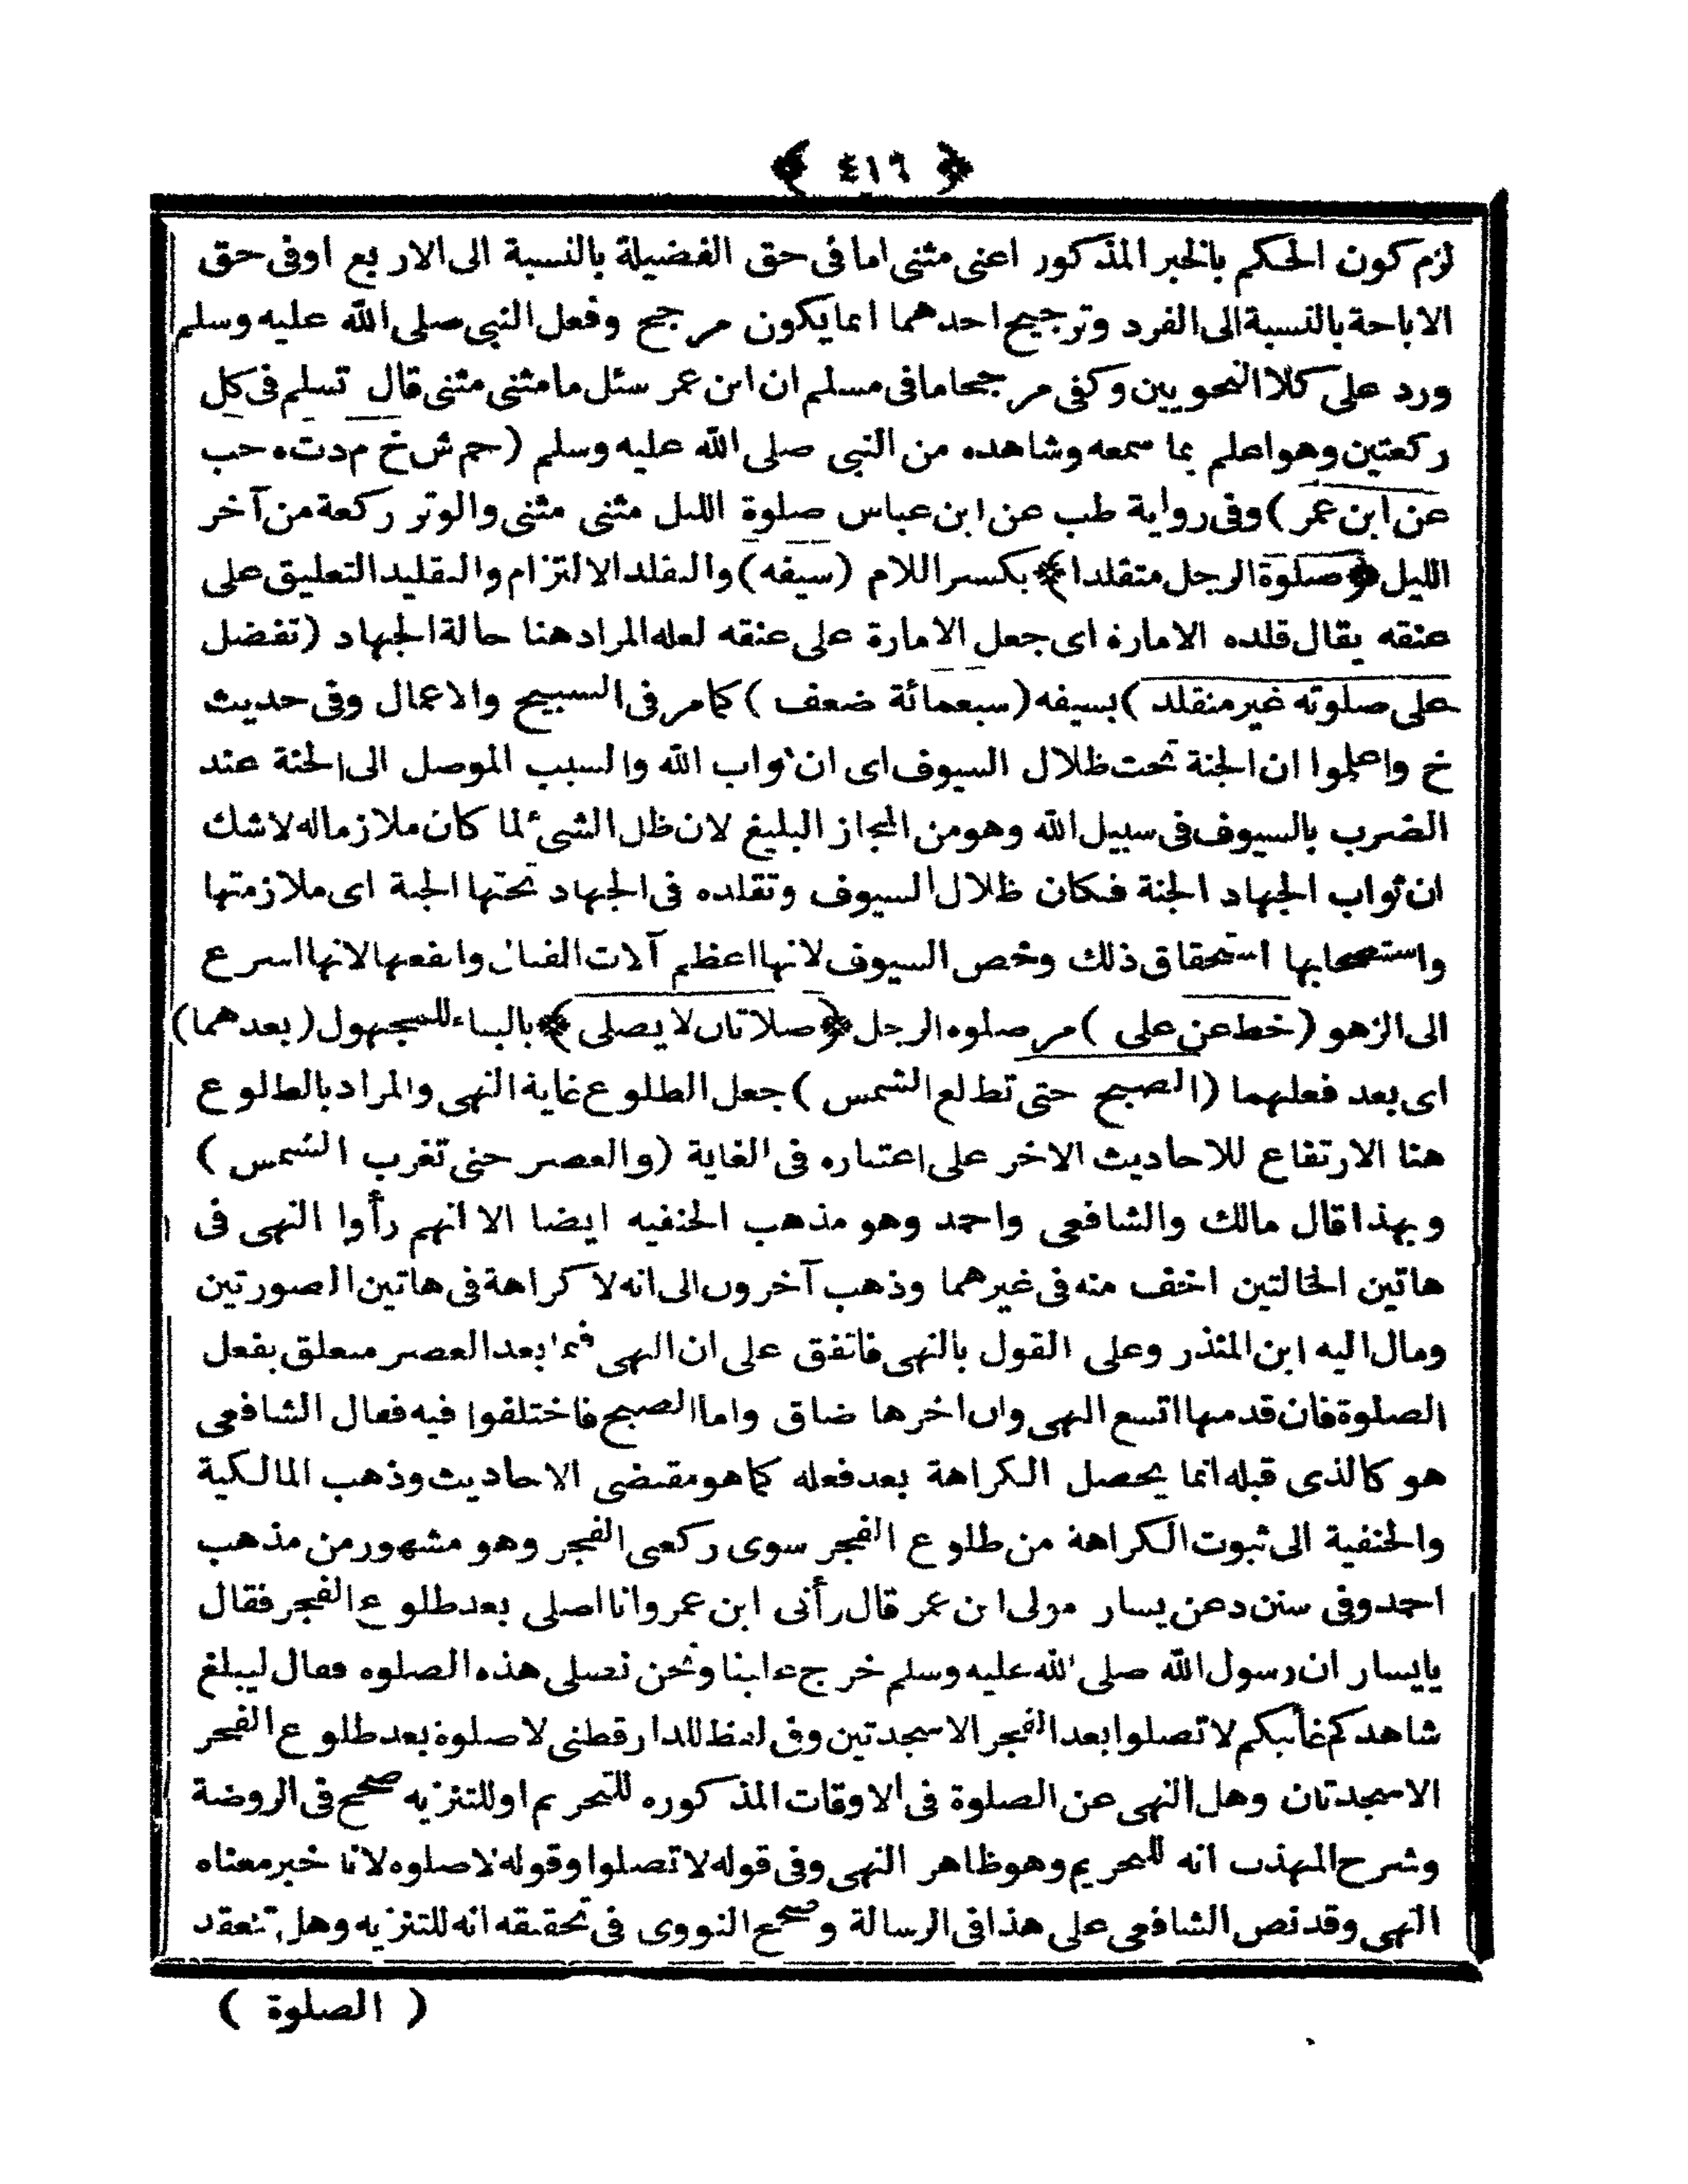 ﴿ ٤١٦ ﴾
لزم كون الحكم بالخبر المذكور اعنى مثنى اما فى حق الفضيلة بالنسبة الى الاربع اوفى حق
الاباحة بالنسبة الى الفرد وترجيح احدهما انما يكون مرجح وفعل النبى صلى الله عليه وسلم
ورد على كلا النحويين وكفى مرجحا ما فى مسلم ان ابن عمر سئل ما مثنى مثنى قال تسلم فى كل
ركعتين وهو اعلم بما سمعه وشاهده من النبى صلى الله عليه وسلم (حم ش خ م د ت ه حب
عن ابن عمر) وفى رواية طب عن ابن عباس صلوة الليل مثنى مثنى والوتر ركعة من آخر
الليل ﴿صلوة الرجل متقلدا﴾ بكسر اللام (سيفه) والتقلد الالتزام والتقليد التعليق على
عنقه يقال قلده الامارة اى جعل الامارة على عنقه لعله المراد هنا حالة الجهاد (تفضل
على صلوته غير متقلد) بسيفه (سبعمائة ضعف) كما مر فى التسبيح والاعمال وفى حديث
خ واعلموا ان الجنة تحت ظلال السيوف اى ان ثواب الله والسبب الموصل الى الجنة عند
الضرب بالسيوف فى سبيل الله وهو من المجاز البليغ لان ظل الشئ لما كان ملازما له لا شك
ان ثواب الجهاد الجنة فكان ظلال السيوف وتقلده فى الجهاد تحتها الجنة اى ملازمتها
واستصحابها استحقاق ذلك وخص السيوف لانها اعظم آلات القتال وانفعها لانها اسرع
الى الزهو (خط عن على) مر صلوة الرجل ﴿صلاتان لا يصلى﴾ بالياء للمجهول (بعدهما)
اى بعد فعلهما (الصبح حتى تطلع الشمس) جعل الطلوع غاية النهى والمراد بالطلوع
هنا الارتفاع للاحاديث الاخر على اعتباره فى الغاية (والعصر حتى تغرب الشمس)
وبهذا قال مالك والشافعى واحمد وهو مذهب الحنفيه ايضا الا انهم رأوا النهى فى
هاتين الحالتين اخف منه فى غيرهما وذهب آخرون الى انه لا كراهة فى هاتين الصورتين
ومال اليه ابن المنذر وعلى القول بالنهى فاتفق على ان النهى فيما بعد العصر متعلق بفعل
الصلوة فان قدمها اتسع النهى وان اخرها ضاق واما الصبح فاختلفوا فيه فقال الشافعى
هو كالذى قبله انما يحصل الكراهة بعد فعله كما هو مقتضى الاحاديث وذهب المالكية
والحنفية الى ثبوت الكراهة من طلوع الفجر سوى ركعتى الفجر وهو مشهور من مذهب
احمد وفى سنن د عن يسار مولى ابن عمر قال رأنى ابن عمر وانا اصلى بعد طلوع الفجر فقال
يا يسار ان رسول الله صلى الله عليه وسلم خرج علينا ونحن نصلى هذه الصلوه فقال ليبلغ
شاهدكم غائبكم لا تصلوا بعد الفجر الا سجدتين وفى لفظ للدارقطنى لا صلوة بعد طلوع الفجر
الا سجدتان وهل النهى عن الصلوة فى الاوقات المذكوره للتحريم او للتنزيه صحح فى الروضة
وشرح المهذب انه للتحريم وهو ظاهر النهى وفى قوله لا تصلوا وقوله لا صلوه لانا خبر معناه
النهى وقد نص الشافعى على هذا فى الرسالة وصحح النووى فى تحقيقه انه للتنزيه وهل تنعقد
( الصلوة )